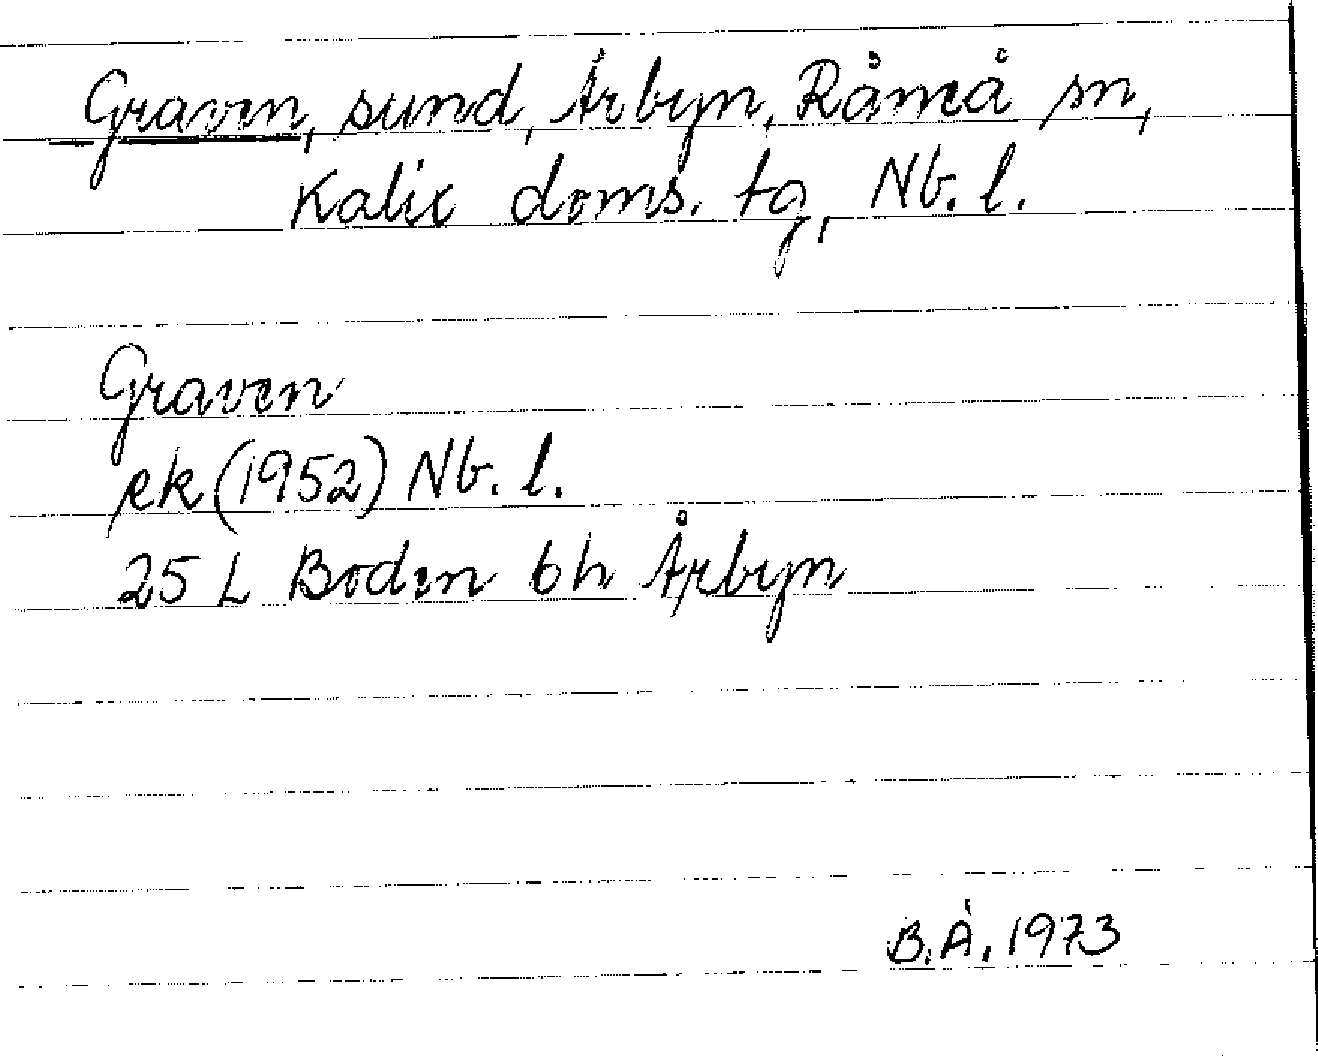 Graven, sund, Årbyn, Råneå sn,
Kalix doms. tg, Nb. l.
Graven
ek (1952) Nb. l.
25 L Boden 6h Årbyn
B.Å. 1973